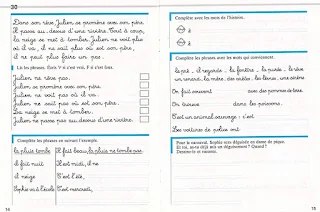 30
Dans son rêve, Julien se promène avec son père.
Il passe au-dessus d'une rivière. Tout à coup,
la neige se met à tomber. Julien ne voit plus
où il va, il ne sait plus où est son père,
il ne peut plus faire un pas.
Lis les phrases. Écris V si c'est vrai, F si c'est faux.
Julien ne rêve pas.
Julien se promène avec son père.
Julien ne voit pas où il va.
Julien ne sait pas où est son père.
La neige se met à tomber.
Julien ne passe pas au-dessus d'une rivière.
Complète les phrases en suivant l'exemple.
la pluie tombe
Il fait beau, la pluie ne tombe pas.
il fait nuit
Il est midi, il ne
il neige
C'est l'été,
Sophie va à l'école
C'est mercredi,
14
Complète avec les mots de l'histoire.
è
ê
Complète avec les phrases avec les mots qui conviennent.
On fait souvent avec des pommes de terre.
On trouve dans les poissons.
C'est un animal sauvage : c'est
Les voitures de police ont
Pour le carnaval, Sophie s'est déguisée en dame de pique.
Et toi, as-tu déjà mis un déguisement ? Quand ?
Dessine-le et raconte.
15